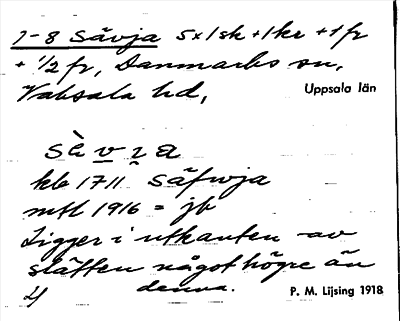 7-8 Sävja 5x1sk + 1kr + 1fr
+ 1/2 fr, Danmarks sn,
Vaksala hd,
Uppsala län
sè̀vıa
kb 1711 Säfwja
mtl 1916 = jb
Ligger i utkanten av
slätten något högre än
denna.
P. M. Lijsing 1918